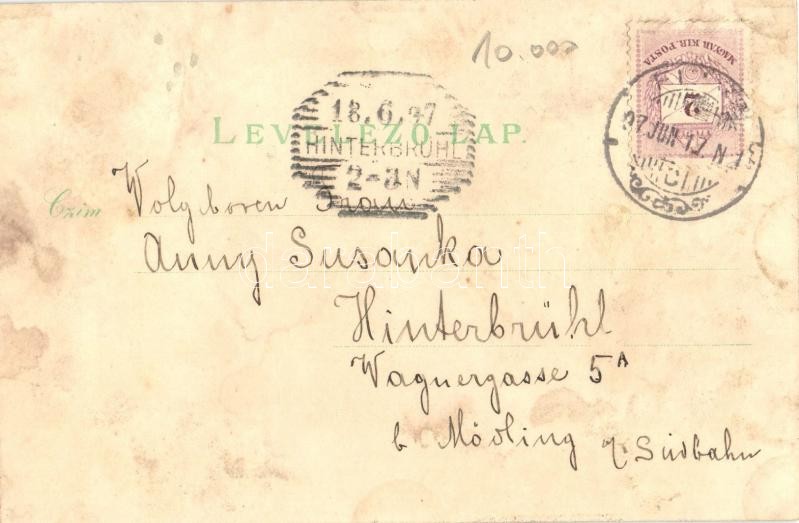 10.000
MAGYAR KIR. POSTA
18.6.97
LEVELEZŐ LAP.
HINTERBRÜHL
97 JUN 17 N
2-3N
Czím
Wolgeboren Frau
Anny Susanka
darabanth
Hinterbrühl
Wagnergasse 5A
b Mödling a/ Südbahn